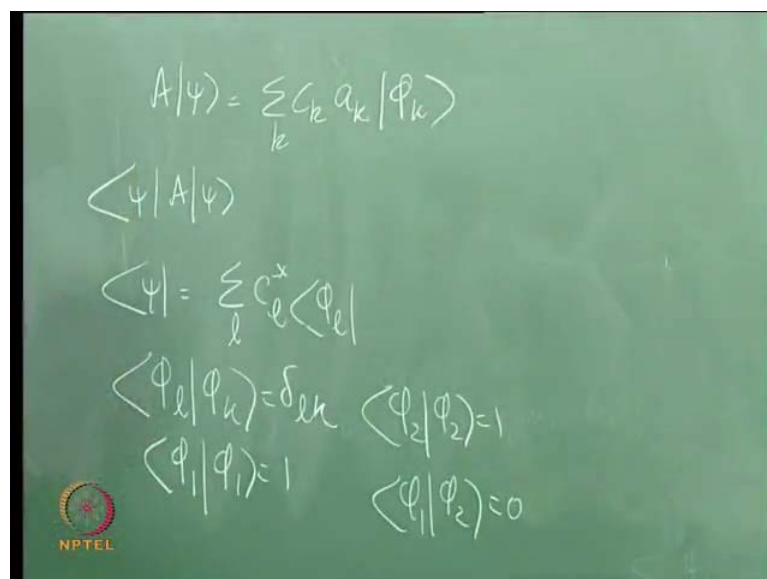 A|ψ⟩ = Σ_k C_k a_k |φ_k⟩
⟨ψ|A|ψ⟩
⟨ψ| = Σ_l C_l^* ⟨φ_l|
⟨φ_l|φ_k⟩ = δ_lk ⟨φ_2|φ_2⟩ = 1
⟨φ_1|φ_1⟩ = 1 ⟨φ_1|φ_2⟩ = 0
NPTEL